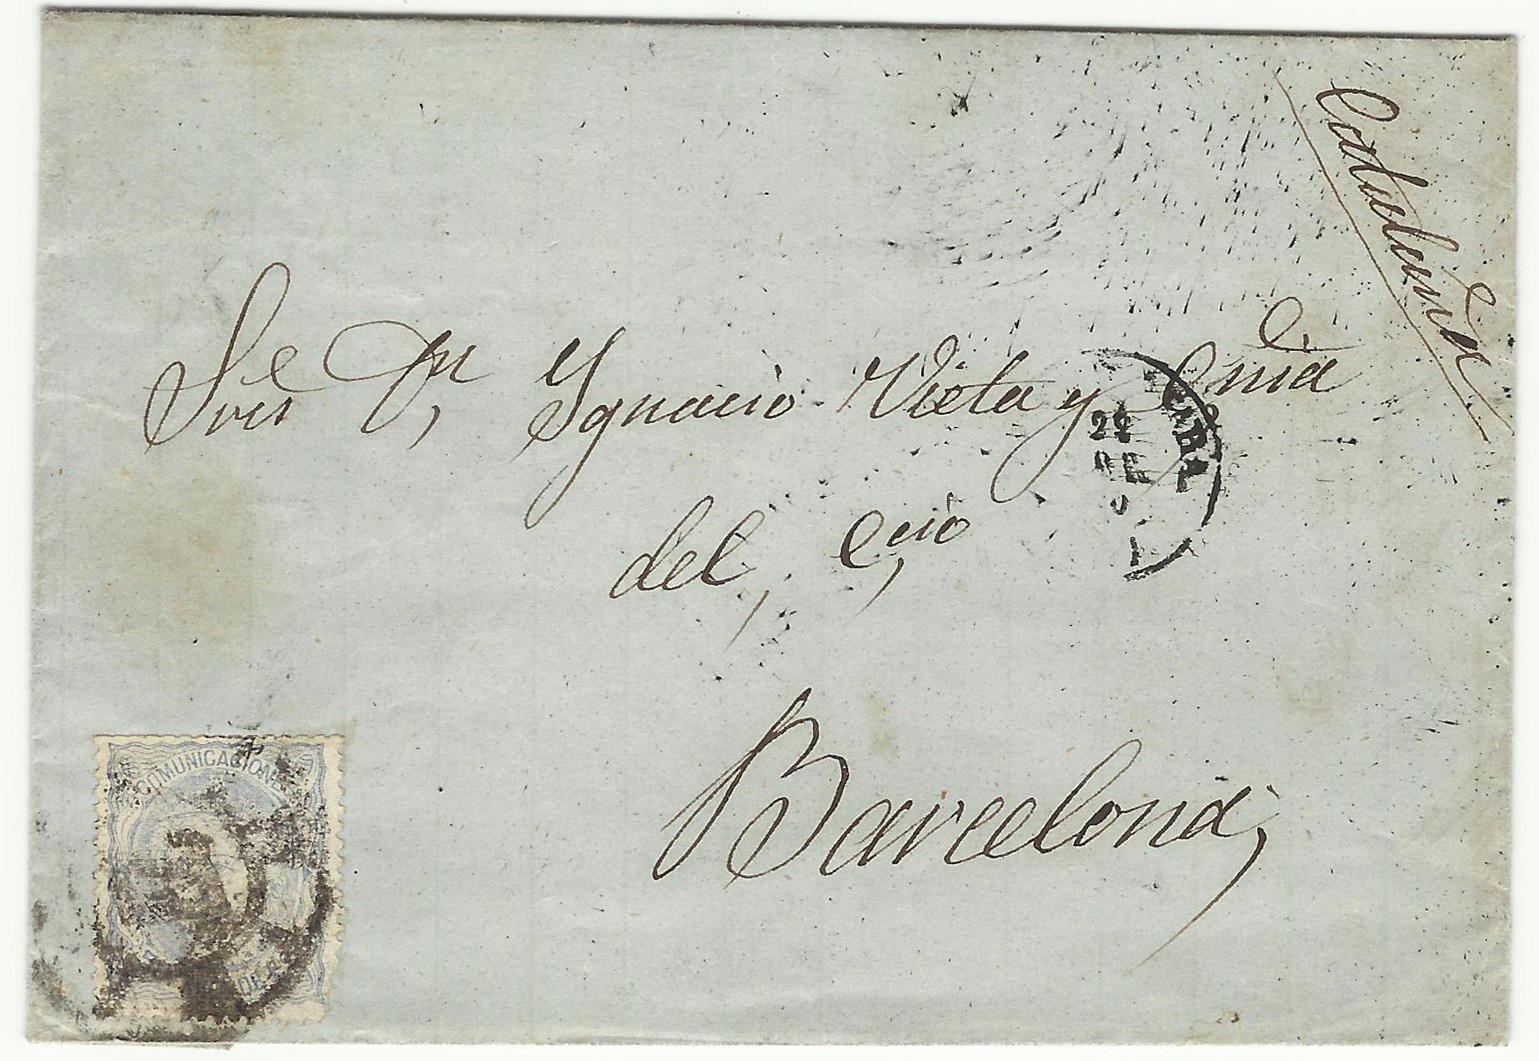 Cataluña
Sres Dn Ignacio Vieta y Cnia
del, Ccio
Barcelona,
22
COMUNICACIONES